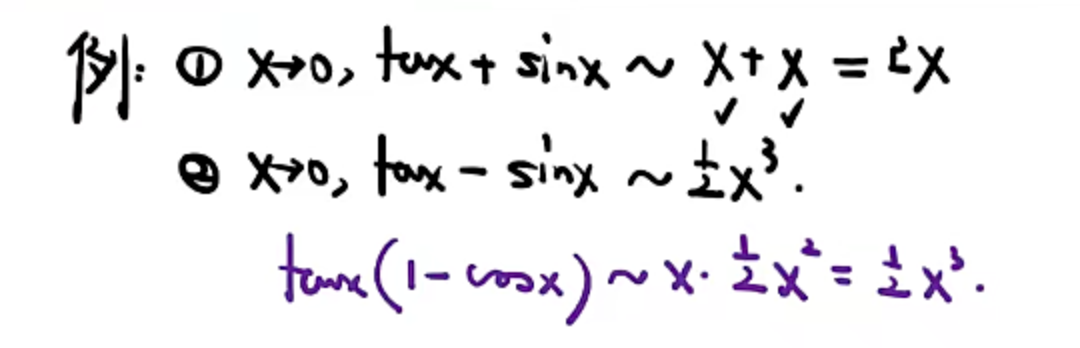 例: ① x→0, tanx + sinx ~ x + x = 2x
✓ ✓
② x→0, tanx - sinx ~ 1/2 x³.
tanx(1-cosx) ~ x · 1/2 x² = 1/2 x³.